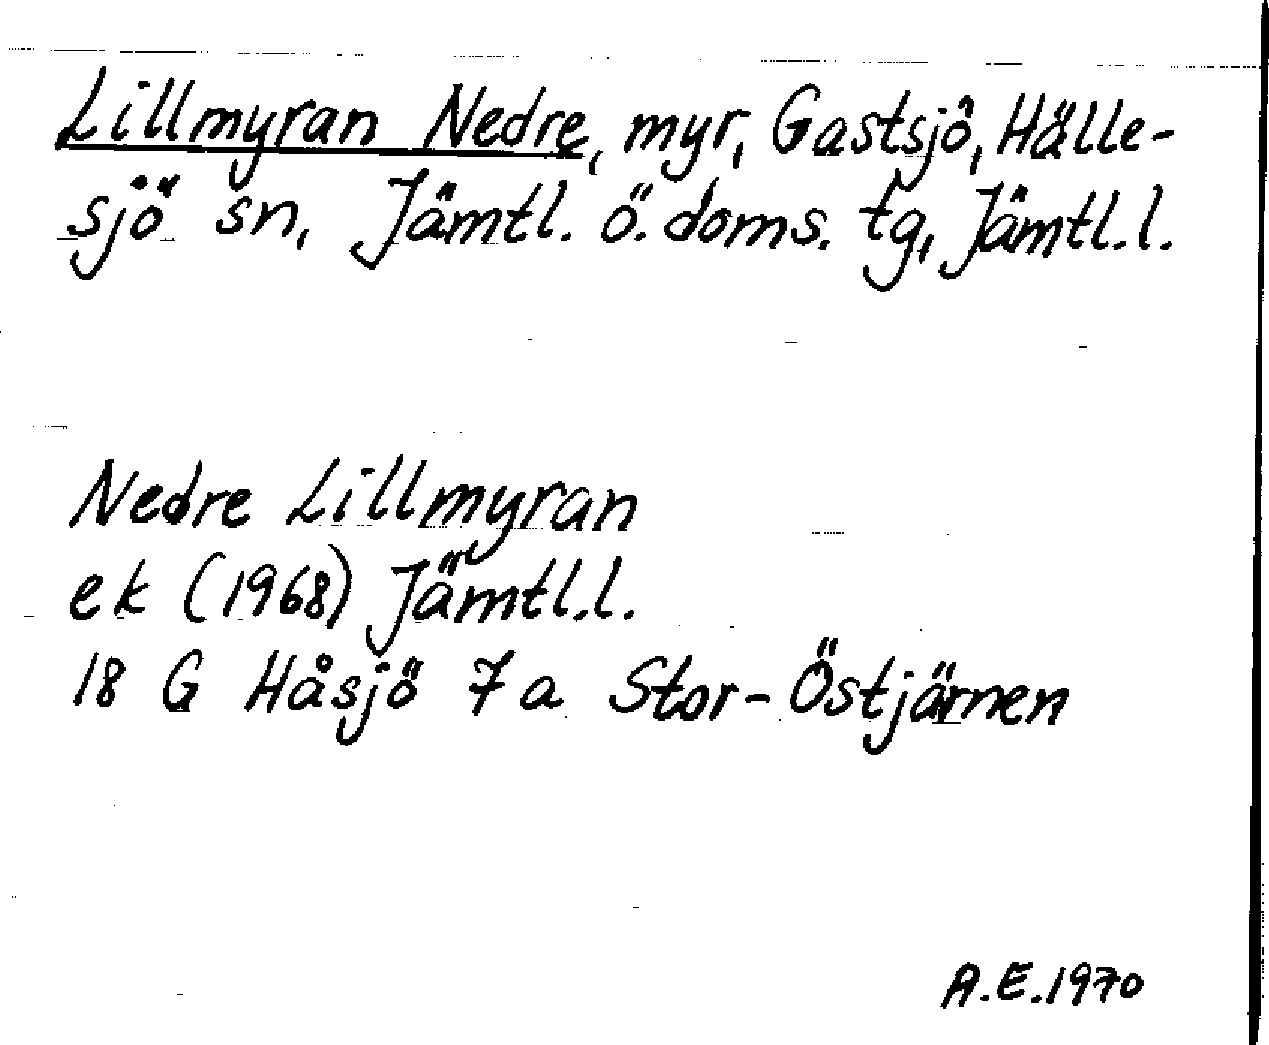 Lillmyran Nedre, myr, Gastsjö, Hälle-
sjö sn, Jämtl. ö. doms. tg, Jämtl.l.
Nedre Lillmyran
ek (1968) Jämtl.l.
18 G Håsjö 7a Stor-Östjärnen
A.E.1970